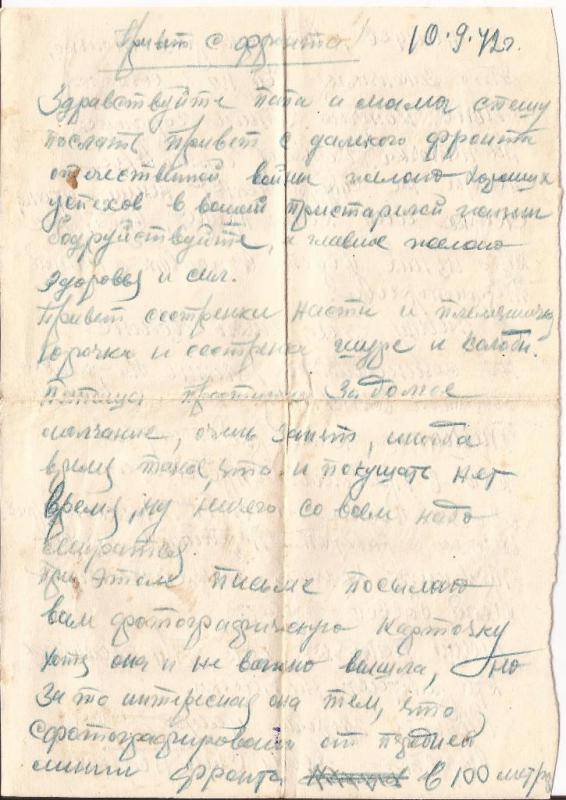 Привет с фронта! 10.9.42г.
Здравствуйте папа и мама спешу
послать привет с далекого фронта
отечественной войны желаю хороших
успехов в вашей пристарелой жизни
бодруйствуйте, и главное желаю
здоровья и сил.
Привет сестренки Насти и племяннику
Юрочки и сестренке Шуре и Володи.
Папаша простите За долгое
молчание, очень Занят, иногда
время такое, что и покушать нет
время, ну ничего со всем надо
При этом письме посылаю
вам фотографическую карточку
хотя она и не важно вышла, но
За то интересная она тем, что
сфотографирован от передней
линии фронта в 100 метра